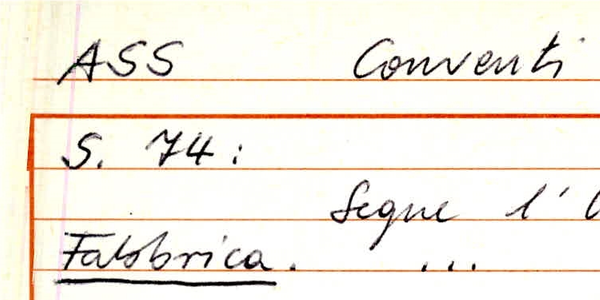 ASS Conventi
S. 74:
Segue l'
Fabbrica. ...